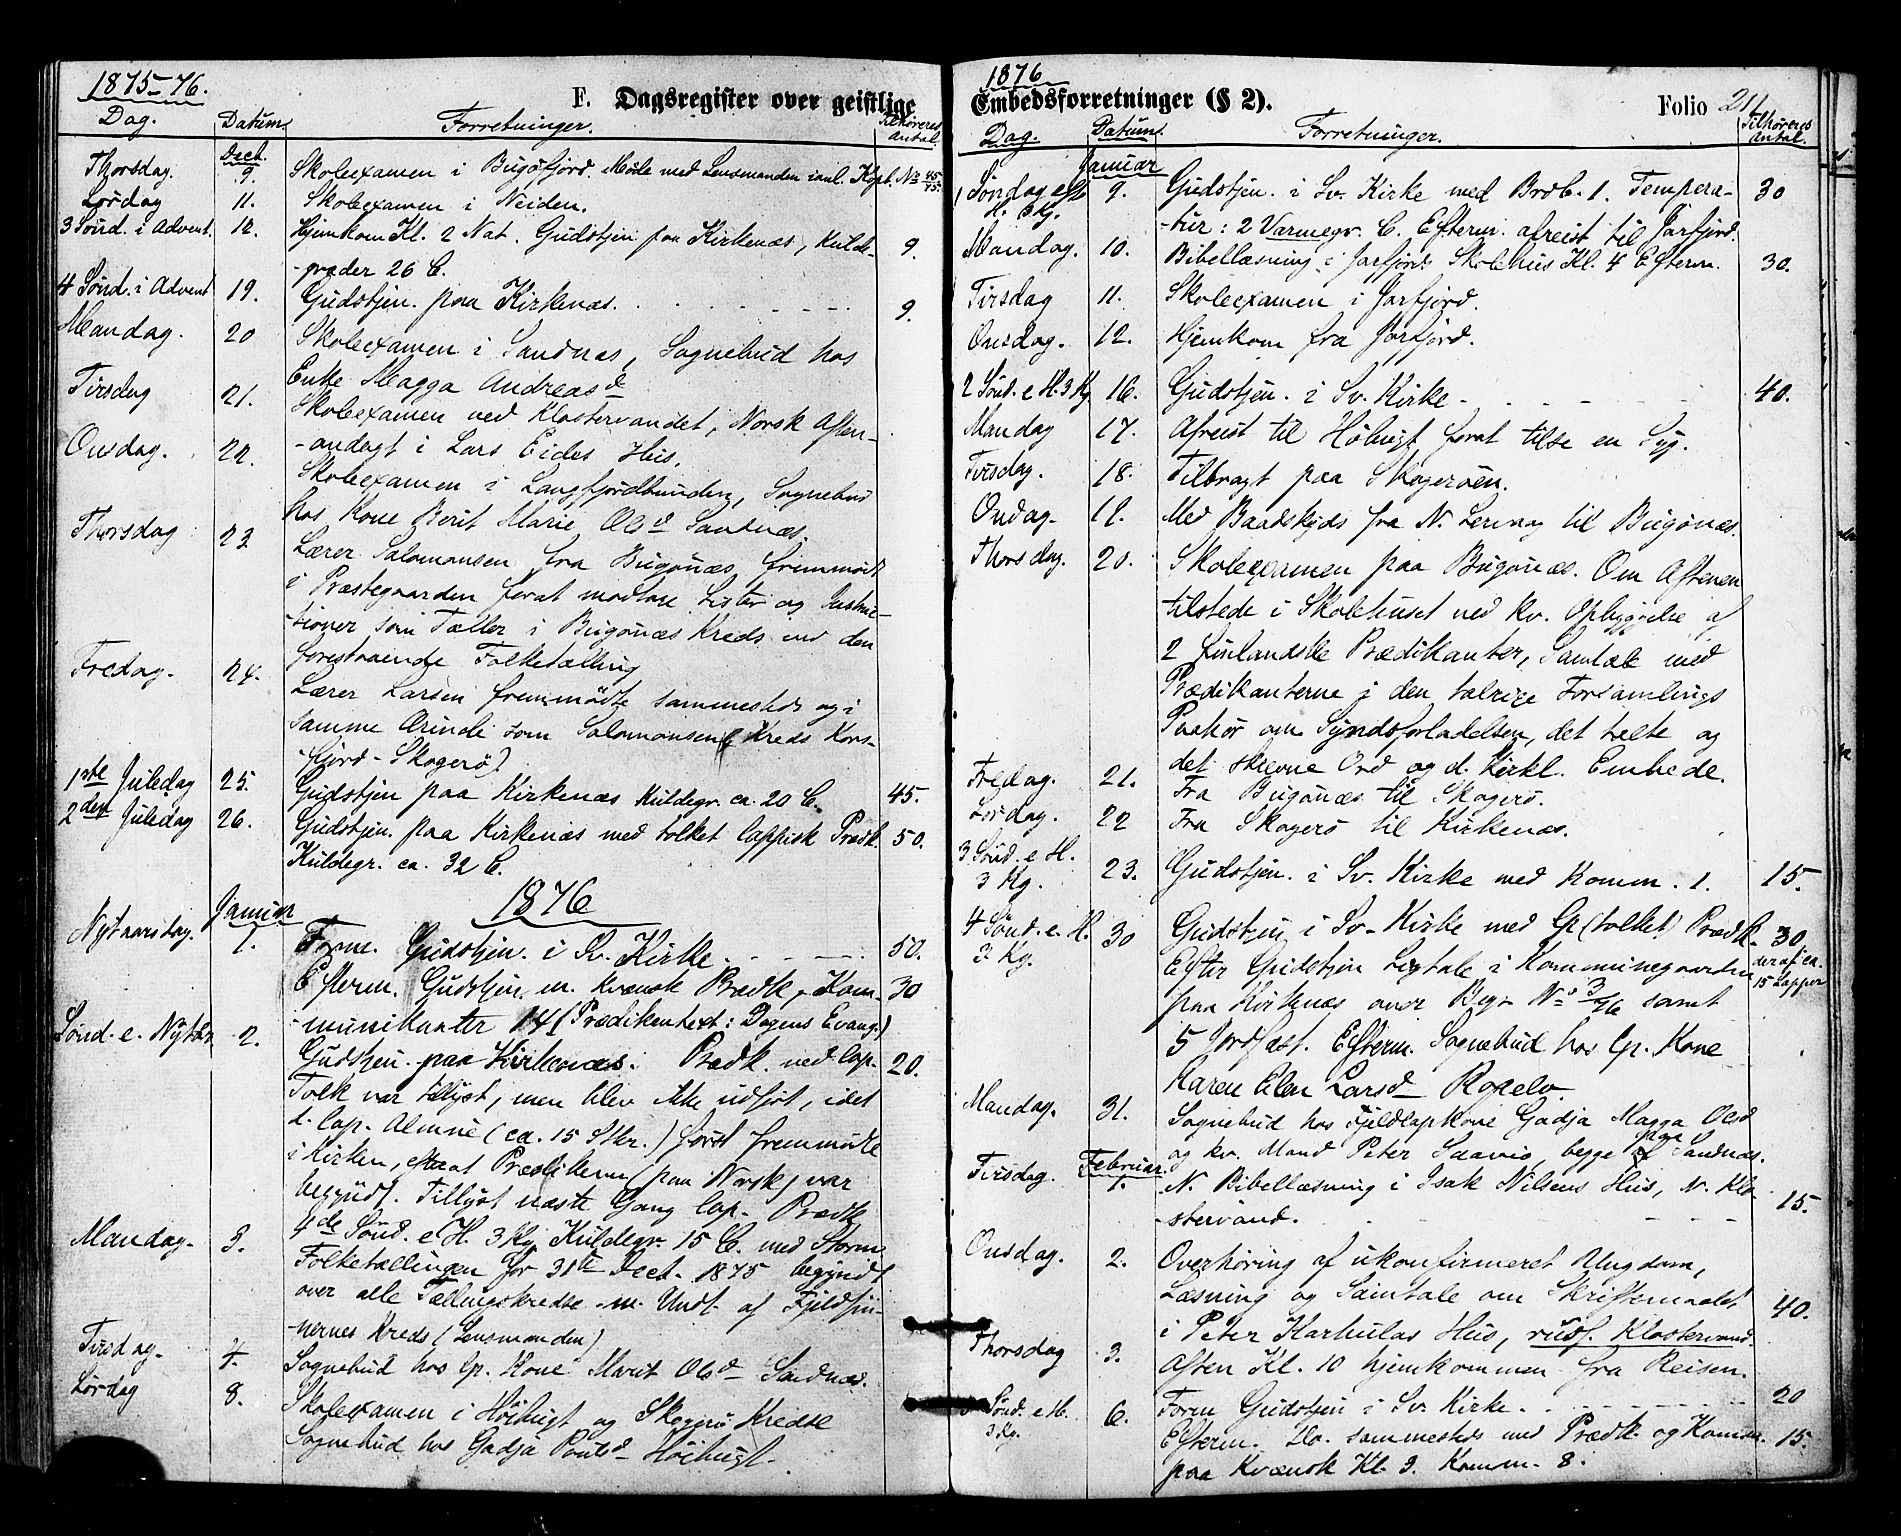 1875-76.
F. Dagsregister over geistlige
Dag. Datum. Forretninger. Tilhøreres Antal.
Decb.
Thorsdag. 9. Skoleexamen i Bugöfjord. Møde med Lensmanden ianl. Kopb. No 45/75.
Lørdag 11. Skoleexamen i Neiden.
3 Sönd. i Advent. 12. Hjemkom Kl. 2 Nat. Gudstjen paa Kirkenæs, Kulde- 9.
-grader 26 C.
4 Sönd. i Advent 19. Gudstjen. paa Kirkenæs. 9.
Mandag. 20 Skoleexamen i Sandnæs, Sognebud hos
Enke Magga Andreasd
Tirsdag 21. Skoleexamen ved Klostervandet, Norsk Aften-
-andagt i Lars Eides Hus.
Onsdag. 22. Skoleexamen i Langfjordbunden, Sognebud
hos Kone Berit Marie Olsd Sandnæs.
Thorsdag 23 Lærer Salomonsen fra Bugönæs fremmödt
i Præstegaarden forat modtage Lister og Instruc-
-tioner som Tæller i Bugönæs Kreds ved den
forestaaende Folketælling
Fredag. 24. Lærer Larsen fremmödte sammesteds og i
samme Ærinde som Salomonsen (Kreds Kors-
-fjord - Skogerö).
1ste Juledag 25. Gudstjen paa Kirkenæs Kuldegr. ca. 20 C. 45.
2den Juledag 26. Gudstjen. paa Kirkenæs med tolket lappisk Prædk. 50.
Kuldegr. ca. 32 C.
1876
Januar
Nytaarsdag. 1. Form. Gudstjen. i Sv. Kirke. 50.
Efterm. Gudstjen. m. kvænsk Prædk., Kom- 30
-munikanter 14 (Prædikentext: Dagens Evang.)
Sönd. e. Nytaar 2. Gudstjen. paa Kirkenæs. Prædk. ved lap. 20.
Tolk var tillyst, men blev ikke udfört, idet
d. lap. Almue (ca. 15 Stkr.) först fremmödte
i Kirken, efterat Prædikenen (paa Norsk) var
begyndt. Tillyst næste Gang lap. Prædk
4de Sönd. e. H. 3 Kg. Kuldegr. 15 C. med Storm
Mandag. 3. Folketællingen for 31te Dect. 1875 begyndt
over alle Tællingskredse m. Undt. af Fjeldfin-
-nernes Kreds (Lensmanden)
Tirsdag. 4. Sognebud hos lp. Kone Marit Olsd Sandnæs.
Lørdag 8. Skoleexamen i Höihugt og Skogerö Kredse
Sognebud hos Gadja Poulsd Höihugt.
1876
Embedsforretninger (§ 2). Folio 211
Dag. Datum. Forretninger. Tilhøreres Antal.
Januar
1 Söndag eft. H. 3 Kg. 9. Gudstjen. i Sv. Kirke med Brdb. 1. Tempera- 30
-tur: 2 Varmegr. C. Efterm. afreist til Jarfjord.
Mandag. 10. Bibellæsning i Jarfjords Skolehus Kl. 4 Efterm. 30.
Tirsdag 11. Skoleexamen i Jarfjord.
Onsdag. 12. Hjemkom fra Jarfjord.
2 Sönd. e H. 3 Kg 16. Gudstjen. i Sv. Kirke 40.
Mandag 17. Afreist til Höhugt forat tilse en Syg.
Tirsdag. 18. Tilbragt paa Skogeröen.
Onsdag. 19. Med Baadskyds fra N. Leinvag til Bugönæs.
Thorsdag. 20. Skoleexamen paa Bugönæs. Om Aftenen
tilstede i Skolehuset ved kv. Opbyggelse af
2 finlandske Prædikanter, Samtale med
Prædikanterne i den talrige Forsamlings
Paahør om Syndsforladelsen, det talte og
det skrevne Ord og d. Kirkl. Embede.
Fredag. 21. Fra Bugönæs til Skogerö.
Lördag. 22 Fra Skogerö til Kirkenæs.
3 Sönd. e H. 3 Kg. 23. Gudstjen. i Sv. Kirke med Komm. 1. 15.
4 Sönd. e. H. 3 Kg. 30 Gudstjen i Sv. Kirke med lp (tolket) Prædk. 30
Efter Gudstjen Ligtale i Kommunegaarden deraf ca. 15 Lapper
paa Kirkenæs over Begr. No 3/76 samt
5 Jordfæst. Efterm. Sognebud hos lp. Kone
Karen Elen Larsd Ropelv.
Mandag. 31. Sognebud hos Fjeldlapkone Gadja Magga Olsd
og kv. Mand Peter Saavio, begge paa Sandnæs.
Februar.
Tirsdag. 1. N. Bibellæsning i Isak Nilsens Hus, N. Klo- 15.
-stervand.
Onsdag. 2. Overhöring af ukonfirmeret Ungdom,
Læsning og Samtale om Skriftemaalet 40.
i Peter Karhulas Hus, russ. Klostervand.
Thorsdag 3. Aften Kl. 10 hjemkommen fra Reisen.
5 Sönd. e H. 3 Kg. 6. Form Gudstjen i Sv. Kirke. 20
Efterm. Do. sammesteds med Prædk. og Komm. 15.
paa Kvænsk Kl. 3. Komm. 8.